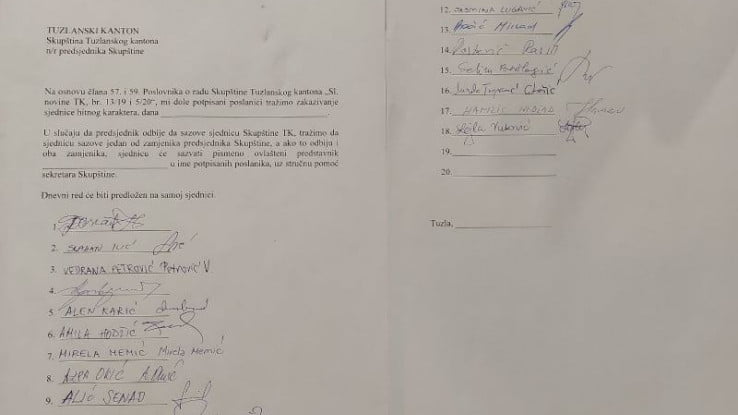 TUZLANSKI KANTON
Skupština Tuzlanskog kantona
n/r predsjednika Skupštine
Na osnovu člana 57. i 59. Poslovnika o radu Skupštine Tuzlanskog kantona „Sl.
novine TK, br. 13/19 i 5/20“, mi dole potpisani poslanici tražimo zakazivanje
sjednice hitnog karaktera, dana
U slučaju da predsjednik odbije da sazove sjednicu Skupštine TK, tražimo da
sjednicu sazove jedan od zamjenika predsjednika Skupštine, a ako to odbiju i
oba zamjenika, sjednicu će sazvati pismeno ovlašteni predstavnik
u ime potpisanih poslanika, uz stručnu pomoć
sekretara Skupštine.
Dnevni red će biti predložen na samoj sjednici.
1.
2. SLAĐAN ILIĆ Ilić
3. VEDRANA PETROVIĆ Petrović V.
4.
5. ALEN KARIĆ
6. AMILA HODŽIĆ
7. MIRELA MEMIĆ Mirela Memić
8. AZRA OKIĆ A. Okić
9. ALIĆ SENAD
12. JASMINA LUGAVIĆ
13. Mirsad
14.
15. Selma
16.
17. HAMZIĆ
18. Lejla Vuković
19.
20.
Tuzla,